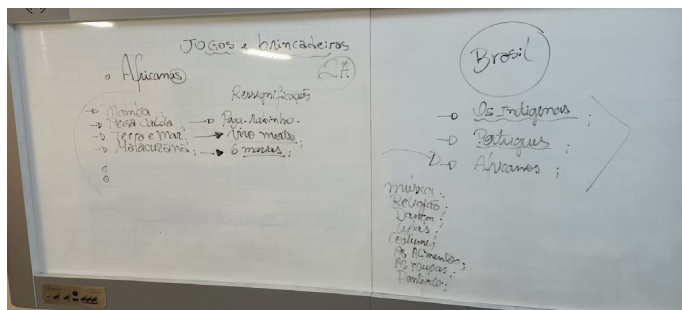 Jogos e brincadeiras
2A
Africanas
Ressignificação
Mamba;
Pega Cauda → Pega-rabinho.
Terra e Mar; → Vivo morto;
Matacuzana; → 5 marias;
Brasil
Os Indígenas;
Portugues;
Africanos;
música;
Religião;
Dança;
Lutas;
Costumes
As Alimentos;
As roupas;